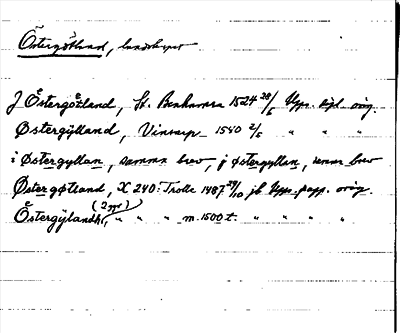 Östergötland, landskapet
J Östergötland, St. Benhamra 1524 28/5 Upps. sigl. orig.
Østergylland, Vinorup 1540 2/5 " " "
i Østergyllan, samma brev, j østergyllan, samma brev
Østergøtland, X 240: Trolle 1487 29/10 jb Upps. papp. orig.
Östergylandh, (2 ggr) " " " m. 1500 t. " " " "